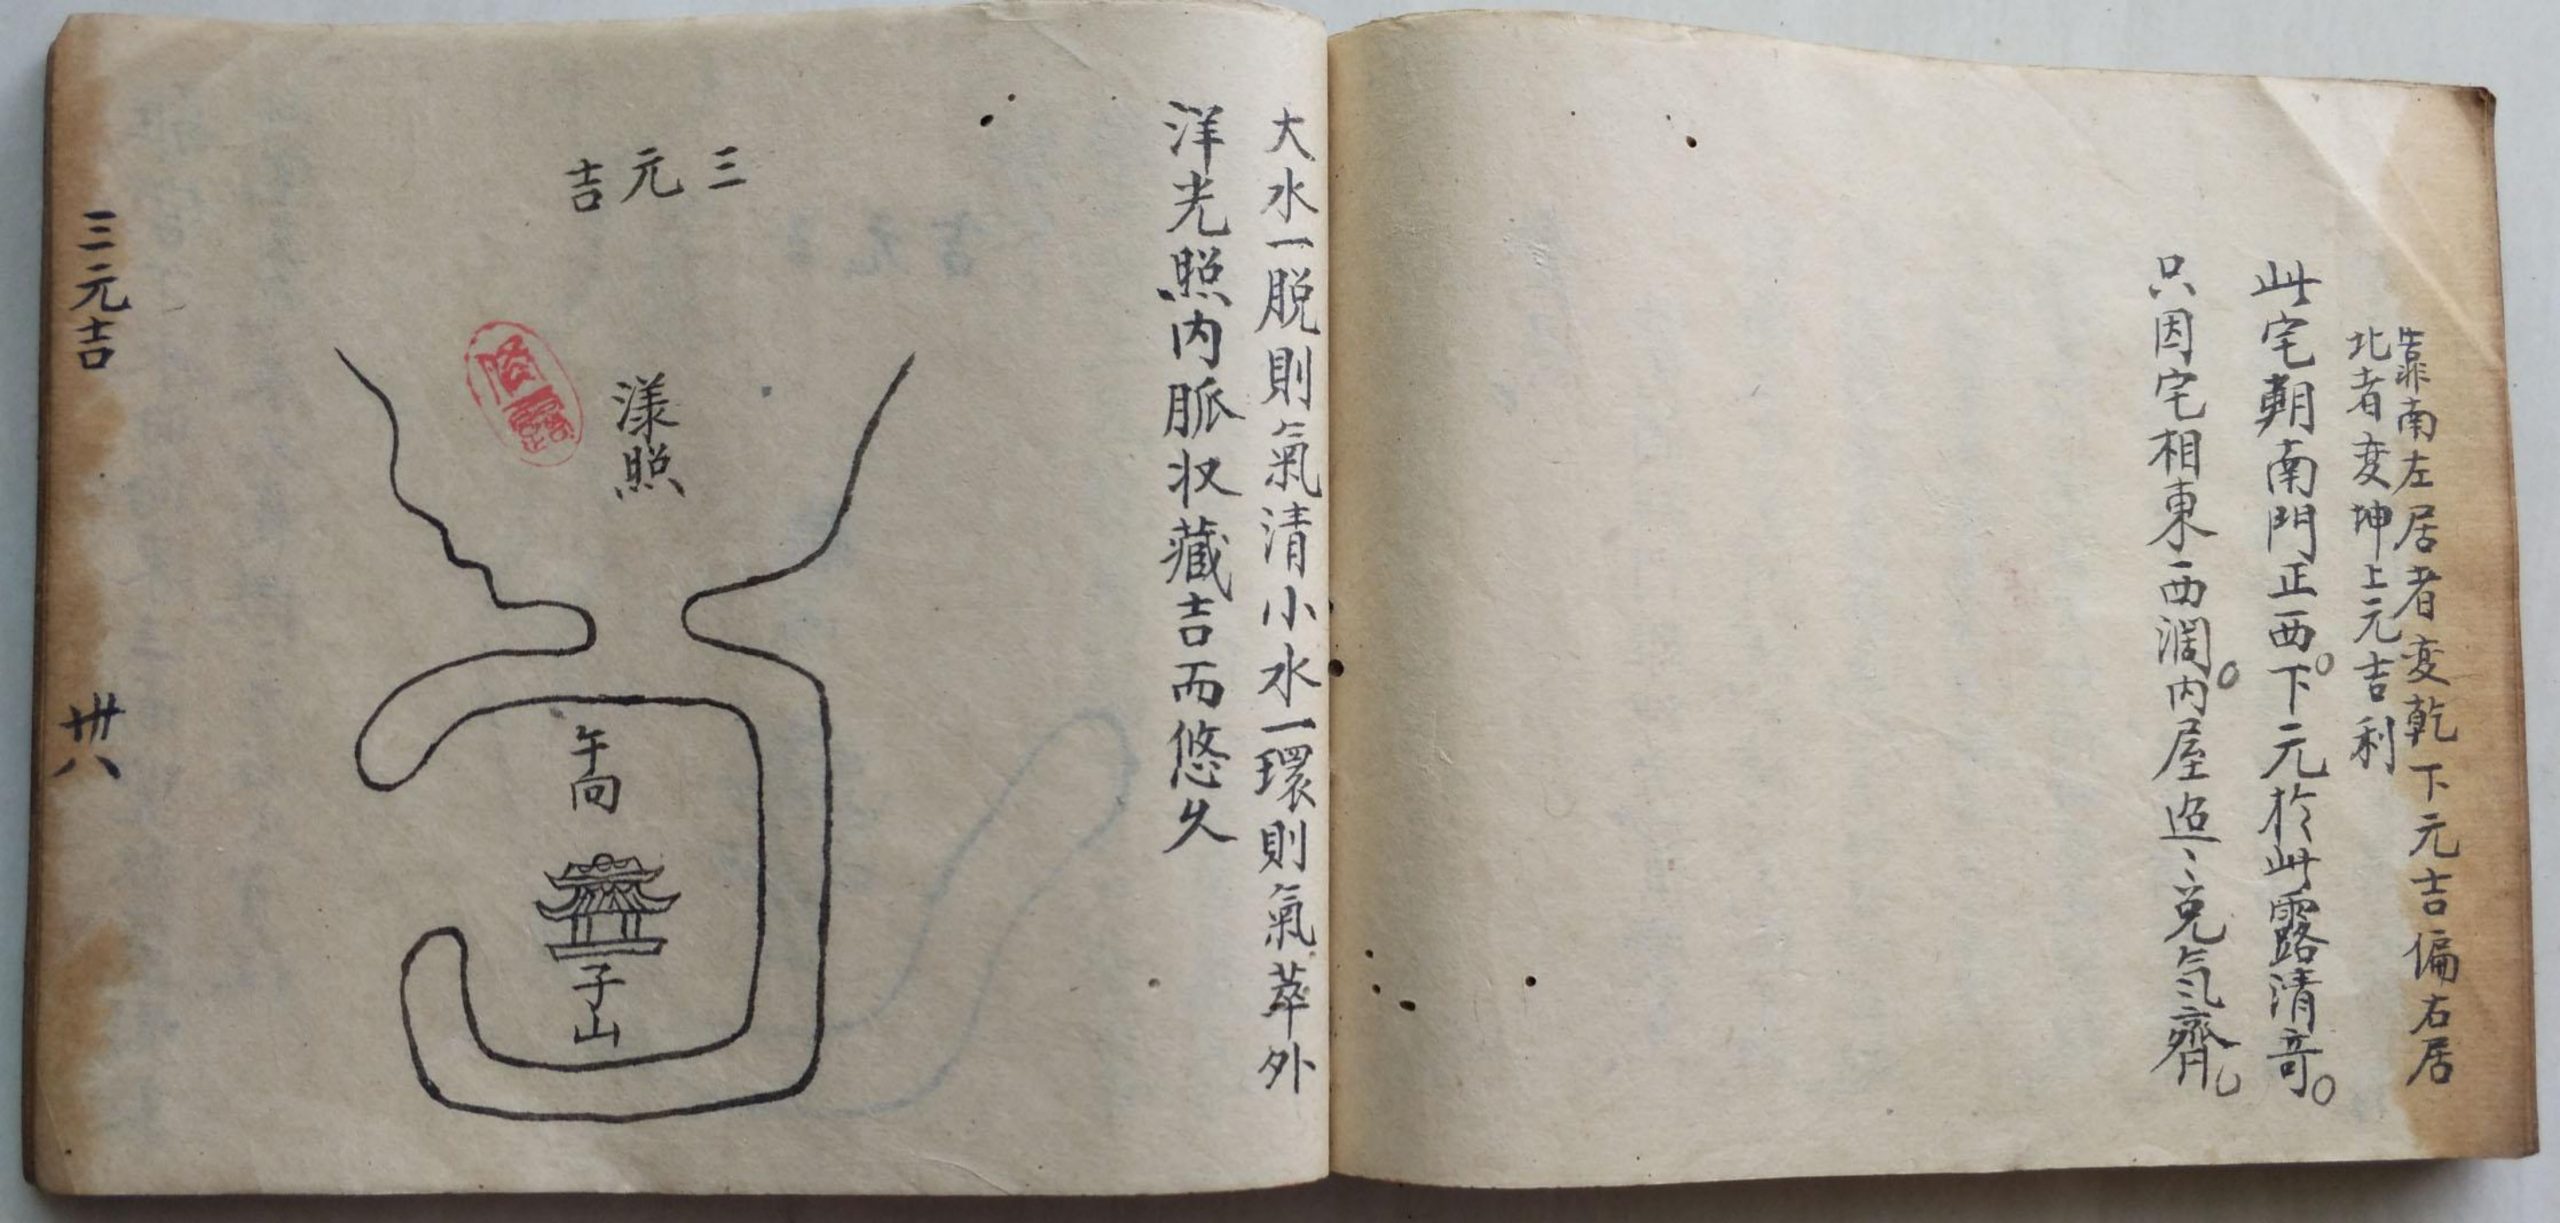 靠南左居者変乾下元吉偏右居
北者变坤上元吉利
此宅朝南門正西。下元於此露清奇。
只因宅相東西濶。内屋迢〻兑气齊
大水一脱則氣清小水一環則氣萃外
洋光照内脈收藏吉而悠久
三元吉
漾照
午向
子山
三元吉
卅八